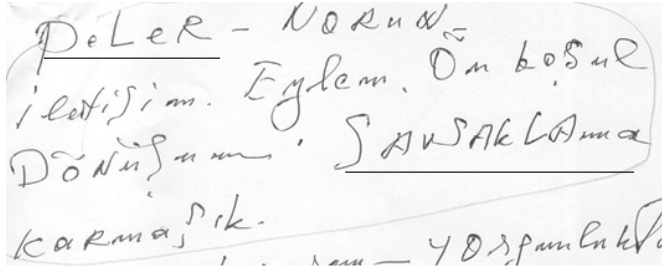 PeLeR - NORuN
iletişim. Eylem. Ön koşul
DÖNüşüm. SAVSAKLAma
KARmaşık.